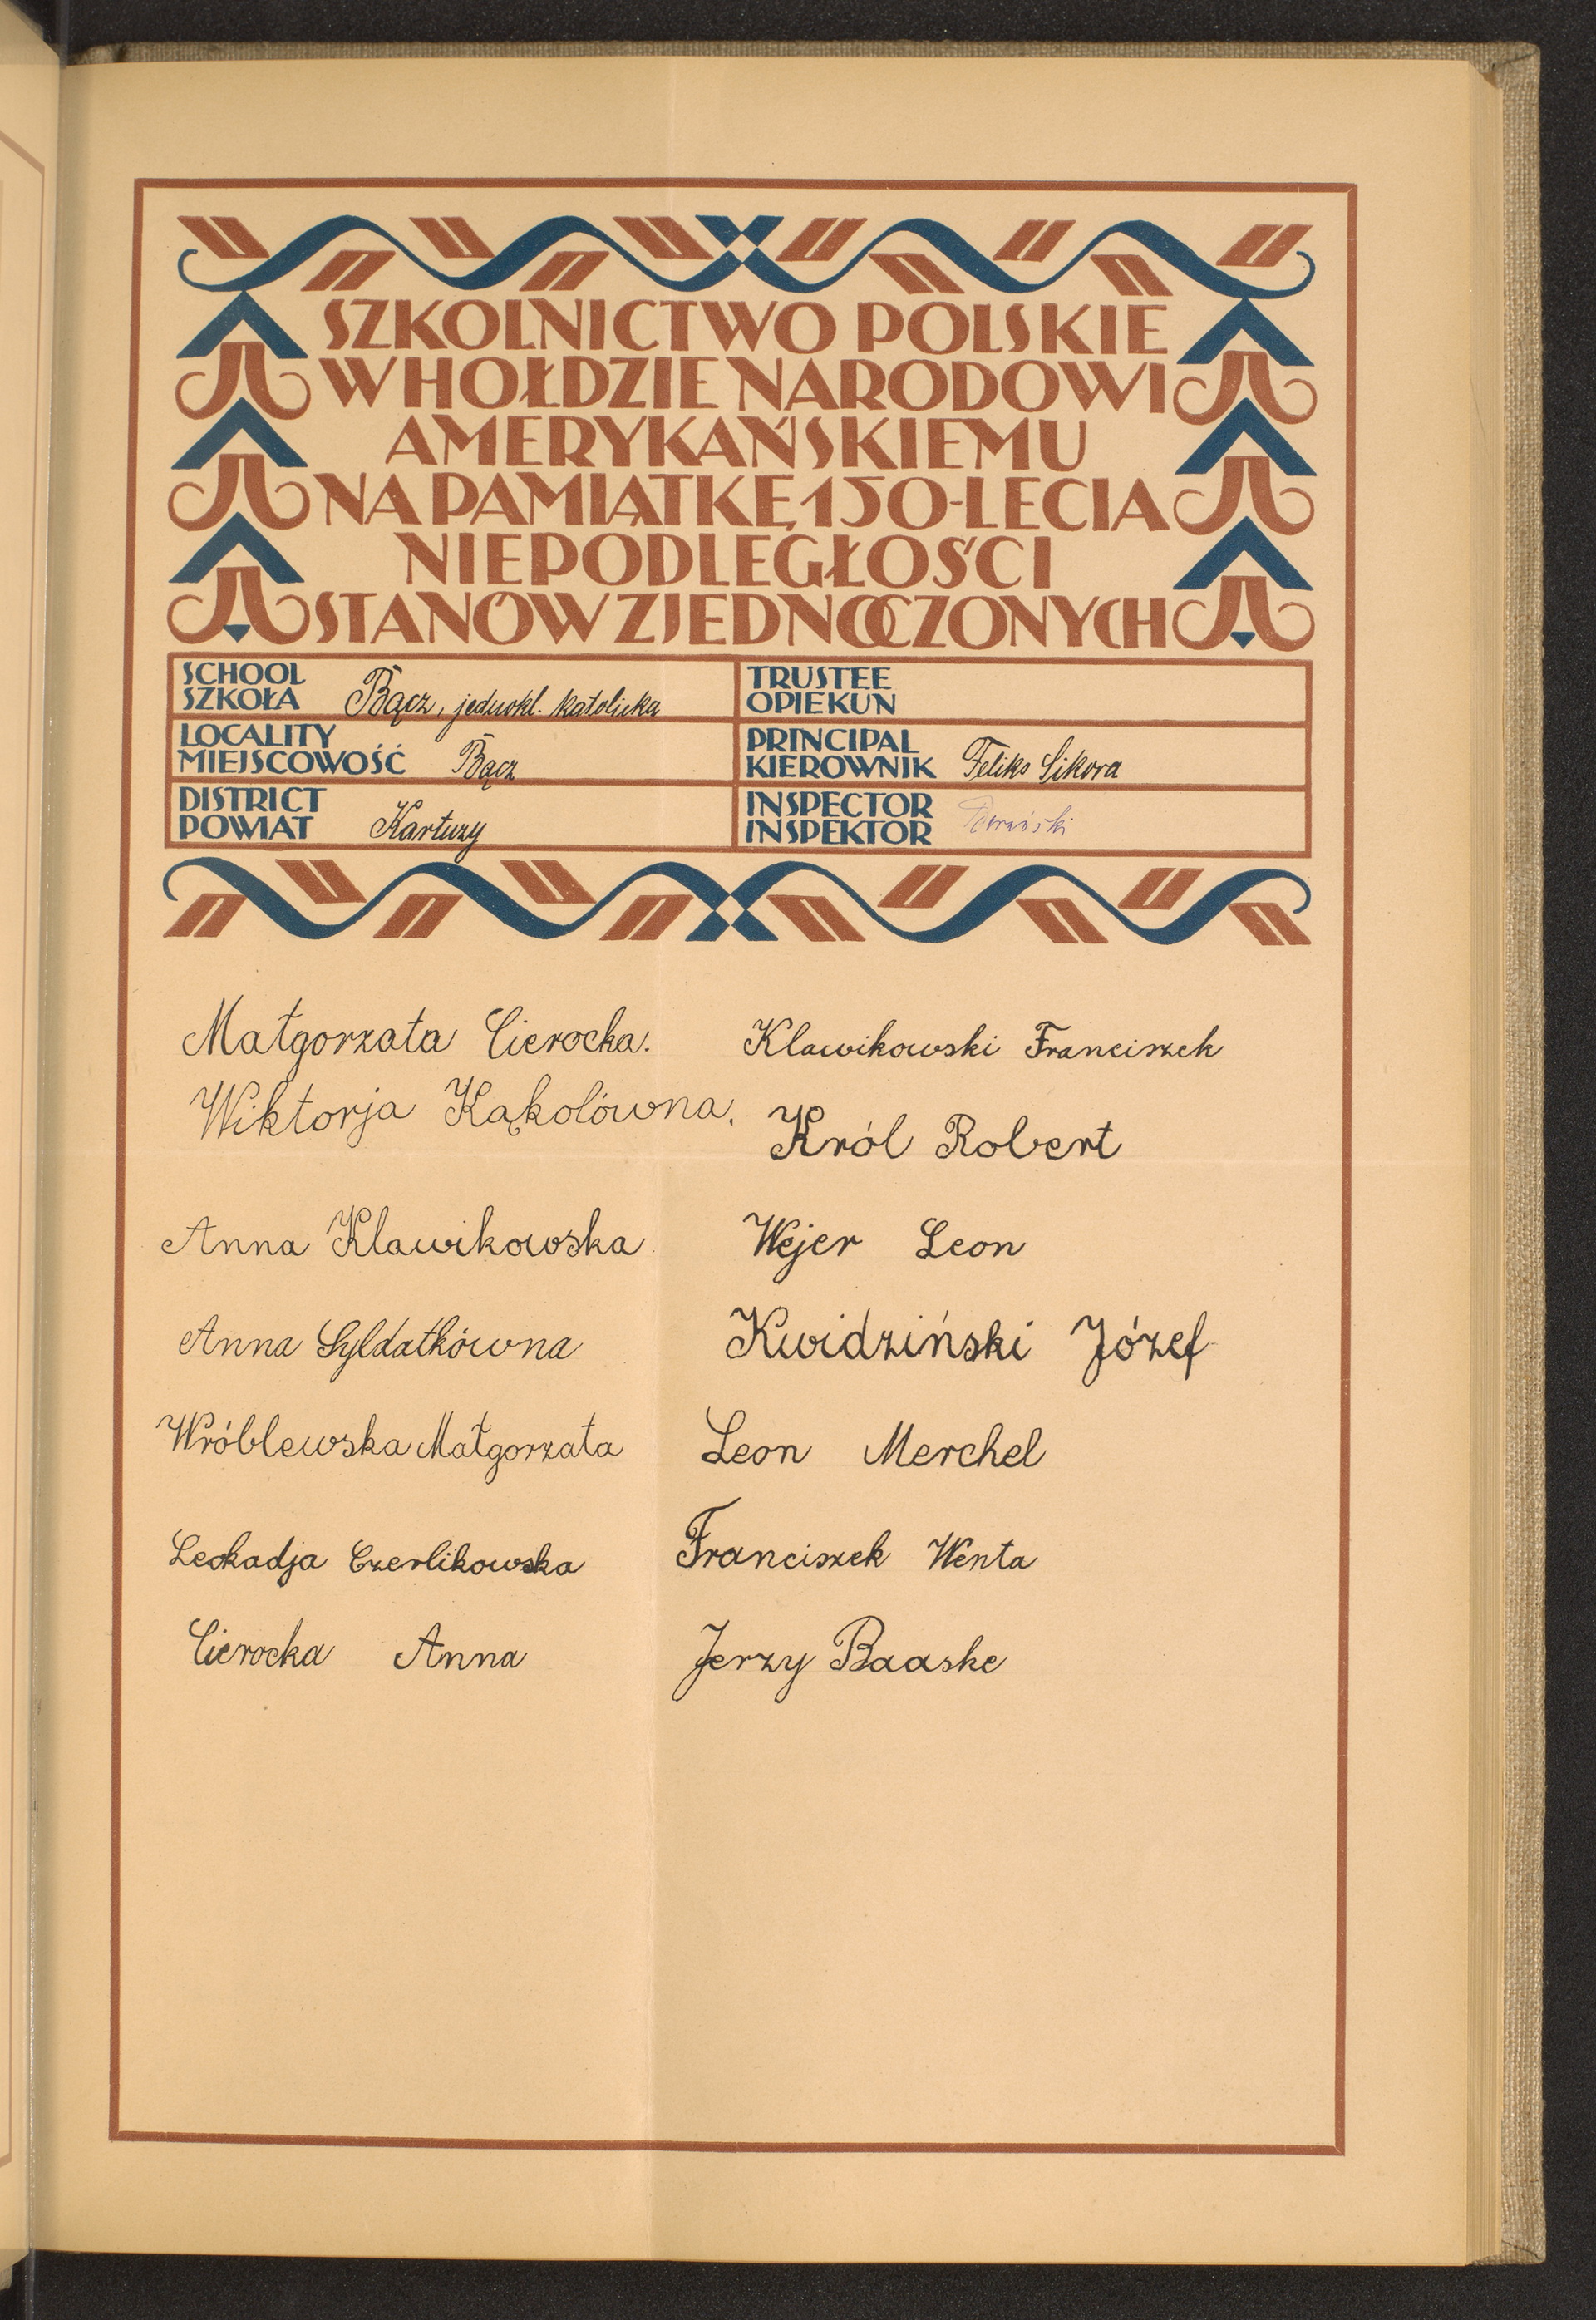 SZKOLNICTWO POLSKIE
W HOŁDZIE NARODOWI
AMERYKAŃSKIEMU
NA PAMIĄTKĘ 150-LECIA
NIEPODLEGŁOŚCI
STANÓW ZJEDNOCZONYCH
SCHOOL
SZKOŁA Bącz, jednokl. katolicka
TRUSTEE
OPIEKUN
LOCALITY
MIEJSCOWOŚĆ Bącz
PRINCIPAL
KIEROWNIK Feliks Sikora
DISTRICT
POWIAT Kartuzy
INSPECTOR
INSPEKTOR
Małgorzata Cierocka.
Wiktorja Kąkolówna.
Anna Klawikowska
Anna Syldatkówna
Wróblewska Małgorzata
Leokadja Czerlikowska
Cierocka Anna
Klawikowski Franciszek
Król Robert
Wejer Leon
Kwidziński Józef
Leon Merchel
Franciszek Wenta
Jerzy Baaske